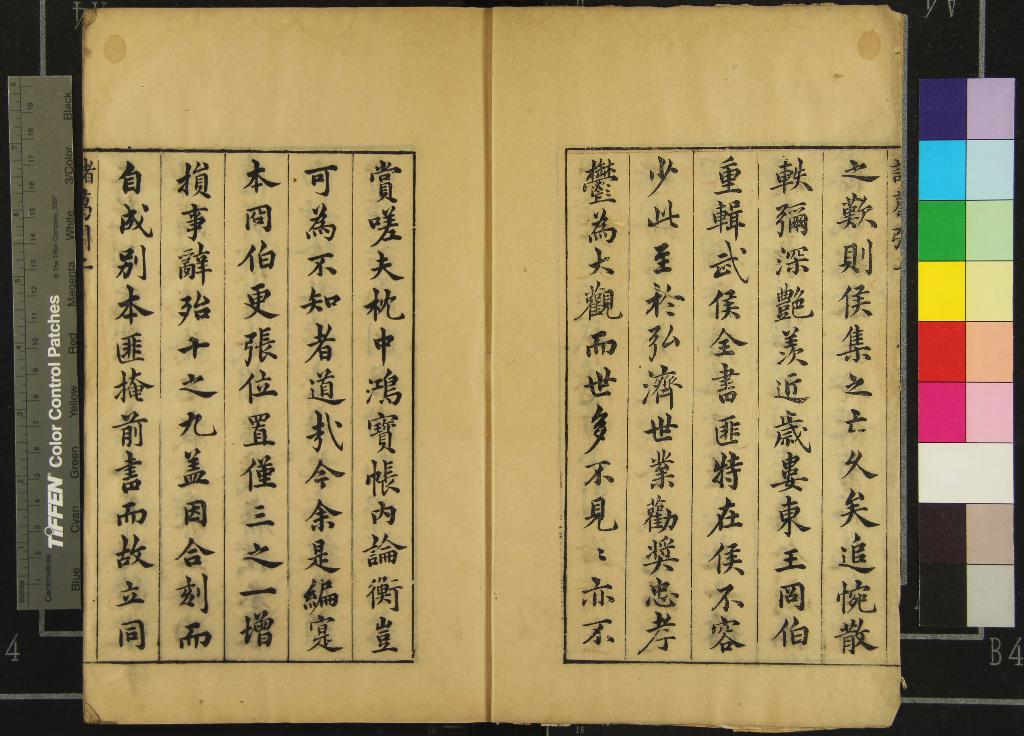 之歎則侯集之亡久矣追惋散
軼彌深艷羨近歲婁東王罔伯
重輯武侯全書匪特在侯不容
少此至於弘濟世業勸奬忠孝
鬱為大觀而世多不見〻亦不
賞嗟夫枕中鴻寶帳內論衡豈
可為不知者道扎今余是編寔
本罔伯更張位置僅三之一增
損事辭殆十之九盖因合刻而
自成別本匪掩前書而故立同
諸葛
TIFFEN Color Control Patches
© The Tiffen Company, 2007
Inches
Centimetres
Blue Cyan Green Yellow Red Magenta White 3/Color Black
B4
4